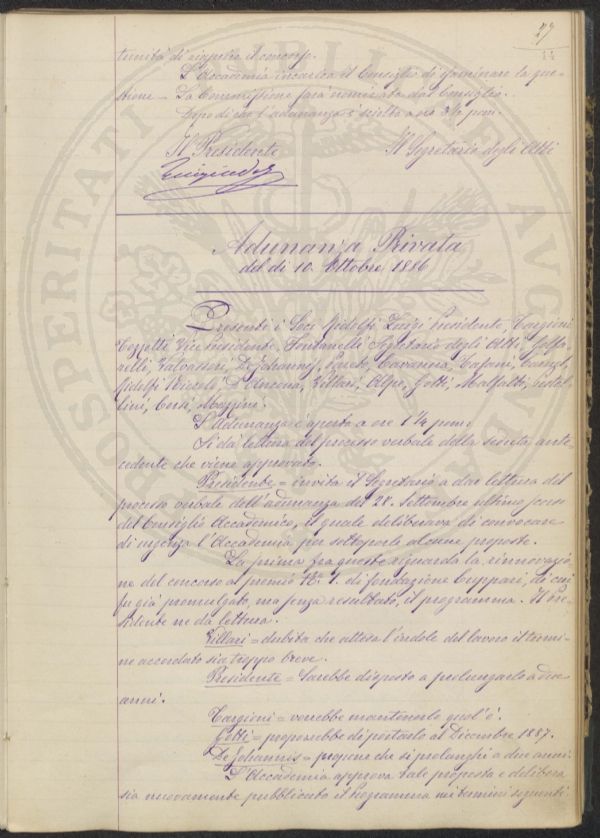 27
tunità di riaprire il concorso.
L'Accademia incarica il Consiglio di esaminare la que-
stione. La Commissione sarà nominata dal Consiglio.
Dopo di che l'adunanza è sciolta a ore 3½ pom.
Il Presidente Il Segretario degli Atti
Adunanza Privata
del dì 10. Ottobre 1886
Presenti i Soci Ridolfi Luigi Presidente, Targioni
Tozzetti Vice Presidente, Fontanelli Segretario degli Atti,
De Johannis, Cavanna,
Ridolfi Niccolò, D'Ancona, Villari, Alpe, Gotti, Malfatti,
L'Adunanza è aperta a ore 1¼ pom.
Si dà lettura del processo verbale della seduta ante-
cedente che viene approvato.
Presidente = invita il Segretario a dar lettura del
processo verbale dell'adunanza del 28. Settembre ultimo
del Consiglio Accademico, il quale deliberava di convocare
di urgenza l'Accademia per sottoporle alcune proposte.
La prima fra queste riguarda la rinnovazio-
ne del concorso al premio di fondazione Cuppari, di cui
fu già promulgato, ma senza resultato, il programma. Il Pre-
sidente ne dà lettura.
Villari = dubita che attesa l'indole del lavoro il termi-
ne accordato sia troppo breve.
Presidente = Sarebbe disposto a prolungarlo a due
anni.
Targioni = vorrebbe mantenerlo qual'è.
Gotti = proporrebbe di portarlo al Dicembre 1887.
De Johannis = propone che si prolunghi a due anni.
L'Accademia approva tale proposta e delibera
sia nuovamente pubblicato il Programma nei termini seguenti
PROSPERITATI PUBLICAE AUGENDAE